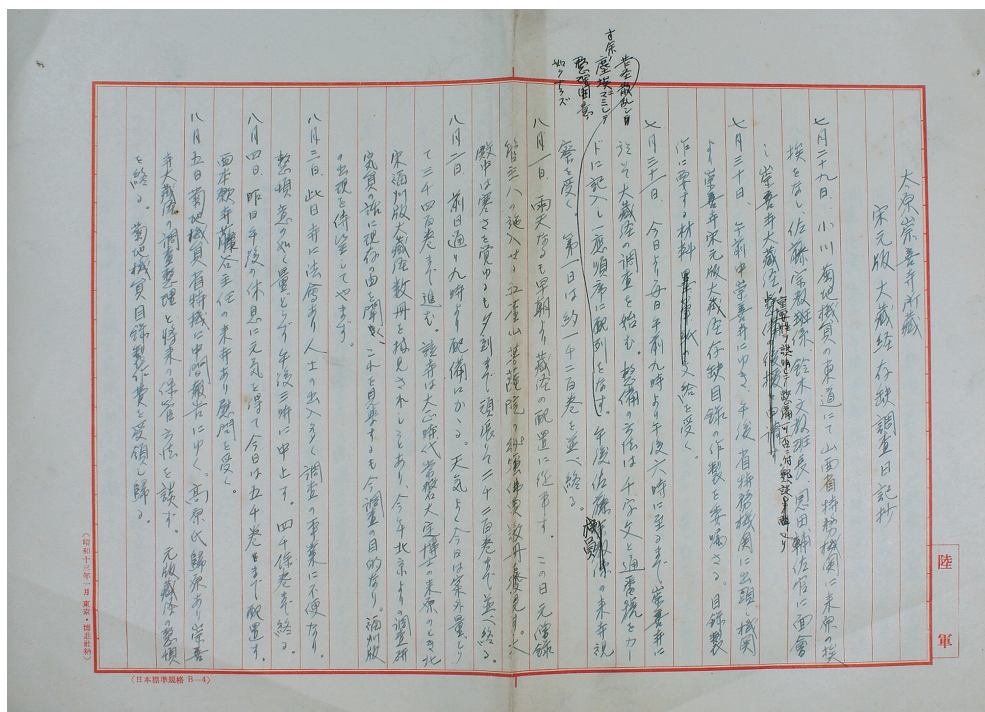 太原崇善寺所蔵
宋元版大蔵経存欠調査日記抄
七月二十九日、小川、菊地機員の東道にて山西省特務機関に来原の挨
挨をなし、佐藤宗教班係、鈴木文教班長、恩田輔佐官に面會
し崇善寺大蔵経
重要性を説明して整備の
後援を申請す
七月三十日、午前中崇善寺にゆき、午後省特務機関に出頭、機関
より崇善寺宋元版大蔵経存缺目録の作製を委嘱さる。目録製
作に要する材料の支給を受く。
七月三十一日、今日より毎日午前九時より午後六時に至るまで崇善寺に
詣で大蔵経の調査を始む。整備の方法は千字文と通番號をカー
ドに記入し一應順序に配列をなす。午後佐藤機員の来寺視
察を受く。第一日は約一千二百巻を並べ終る。
塵埃
整理
八月一日、雨天なるも早朝より蔵経の配置に従事す。この日元僧録
管主八の施入せる五臺山菩薩院の
殿中は寒さを覚ゆるも夕刻まで頑張りて二千二百巻まで並べ終る。
八月二日、前日通り九時より配備にかゝる。天気よく今日は案外量どり
て三千四百巻まで進む。該寺は大正時代常盤大定博士の来原のとき北
宋福州版大蔵経数冊を拍見されしことあり、今年北京よりの調査研
究員の話に現存の由を聞き、これを目集するも今調査の目的なり。福州版
の出現を侍望してやまず。
八月三日、此日寺に法會あり人士の出入多く調査の事業に不便なり。
整頓意の如く量どらず午後三時に中止す。四千余巻まで終る。
八月四日、昨日午後の休息に元気を得て今日は五千巻まで配置す。
西本願寺藤谷主任の来寺あり慰問を受く。
八月五日、菊地機員省特機に中間報告にゆく。高原氏歸原あり崇善
寺大蔵経の調査整理と将来の保管方法を談ず。元版蔵経の整頓
を終る。菊地機員目録製作費を受領し歸る。
陸軍
(昭和十三年一月 東京・博益社納)
(日本標準規格 B—4)